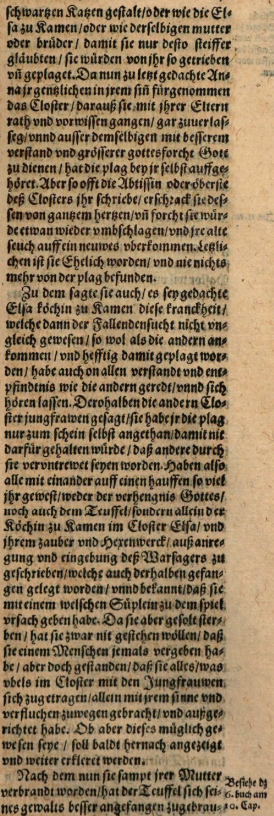 schwartzen Katzen gestalt / oder wie die El-
sa zu Kamen / oder wie derselbigen mutter
oder brüder / damit sie nur desto steiffer
gläubten / sie würden von jhr so getrieben
vñ geplaget. Da nun zu letzt gedachte An-
na jr gentzlichen in jrem siñ fürgenommen
das Closter / darauß sie mit jhrer Eltern
rath vnd vorwissen gangen / gar zuuerlas-
seg / vnnd ausser demselbigen mit besserem
verstand vnd grösserer gottesforcht Gott
zu dienen / hat die plag bey jr selbst auffge-
höret. Aber so offt die Abtissin oder öberste
deß Closters jhr schriebe / erschrack sie des-
sen von gantzem hertzen / vñ forcht sie wür-
de etwan wieder vmbschlagen / vnd jre alte
seuch auff ein neuwes vberkommen. Letzli-
chen ist sie Ehelich worden / vnd nie nichts
mehr von der plag befunden.
Zu dem sagte sie auch / es sey gedachte
Elsa köchin zu Kamen diese kranckheit /
welche dann der Fallendensucht nicht vn-
gleich gewesen / so wol als die andern an-
kommen / vnd hefftig damit geplagt wor-
den / habe auch on allen verstandt vnd ent-
pfindtnis wie die andern geredt / vnnd sich
hören lassen. Derohalben die andern Clo-
ster jungfrawen gesagt / sie habe jr die plag
nur zum schein selbst angethan / damit nit
darfür gehalten würde / daß andere durch
sie vervntrewet seyen worden. Haben also
alle mit einander auff einen hauffen so viel
jhr gewest / weder der verhengnis Gottes /
noch auch dem Teuffel / sondern allein der
Köchin zu Kamen im Closter Elsa / vnd
jhrem zauber vnd Hexenwerck / auß anre-
gung vnd eingebung deß Warsagers zu
geschrieben / welche auch derhalben gefan-
gen gelegt worden / vnnd bekannt / daß sie
mit einem welschen Süplein zu dem spiel
vrsach geben habe. Da sie aber gesolt ster-
ben / hat sie zwar nit gestehen wöllen / daß
sie einem Menschen jemals vergeben ha-
be / aber doch gestanden / daß sie alles / was
vbels im Closter mit den Jungfrauwen
sich zugetragen / allein mit jrem sinne vnd
verfluchen zuwegen gebracht / vnd außge-
richtet habe. Ob aber dieses müglich ge-
wesen seye / soll baldt hernach angezeigt
vnd weiter erkleret werden.
Nach dem nun sie sampt jrer Mutter
verbrandt worden / hat der Teuffel sich sei-
nes gewalts besser angefangen zugebrau-
Besiehe dz
6. buch am
10. Cap.